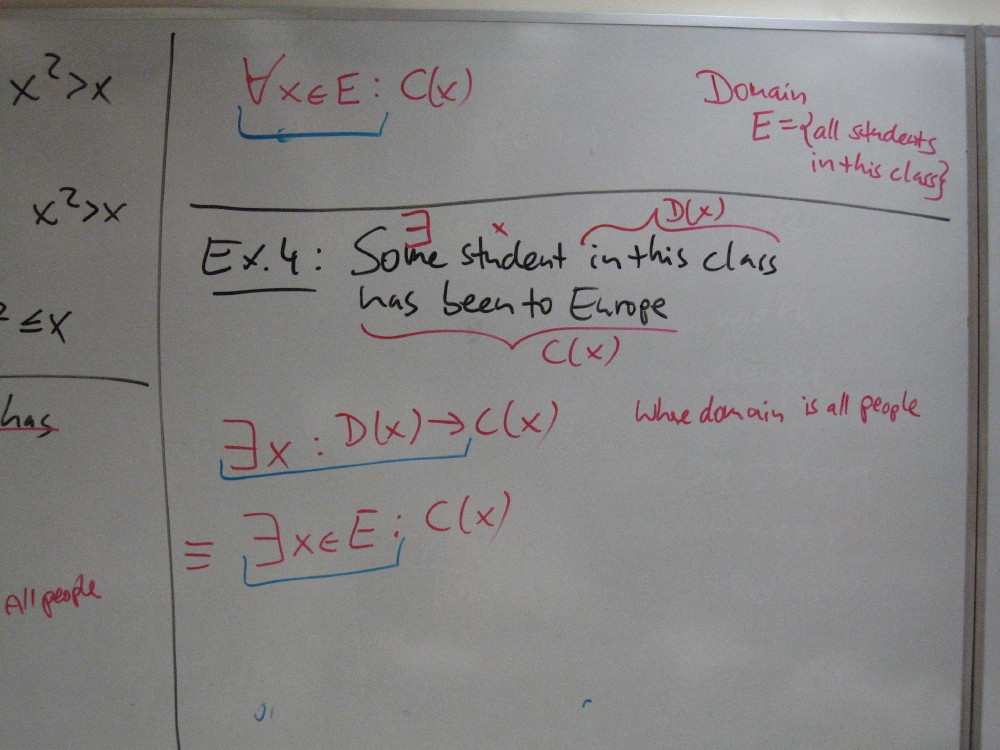 x²>x
x²>x
² ≤x
has
All people
∀x∈E: C(x)
Domain
E={all students
in this class}
∃ x D(x)
Ex.4: Some student in this class
has been to Europe
C(x)
∃x: D(x)→C(x)
where domain is all people
≡ ∃x∈E: C(x)